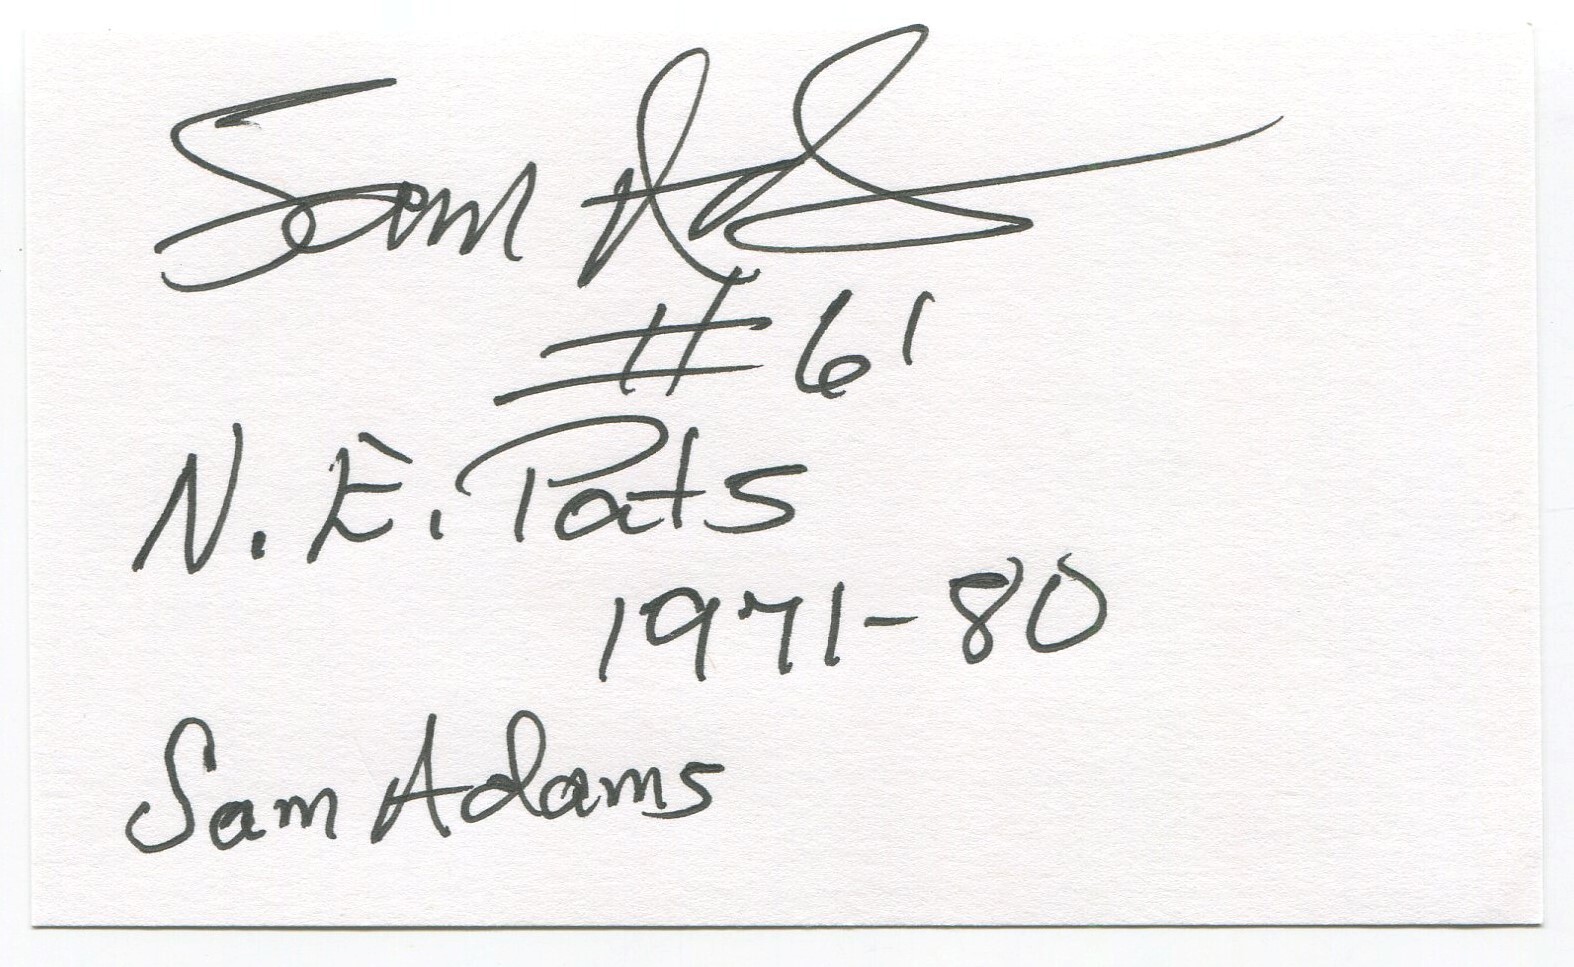 Sam Ad
#61
N.E. Pats
1971-80
Sam Adams